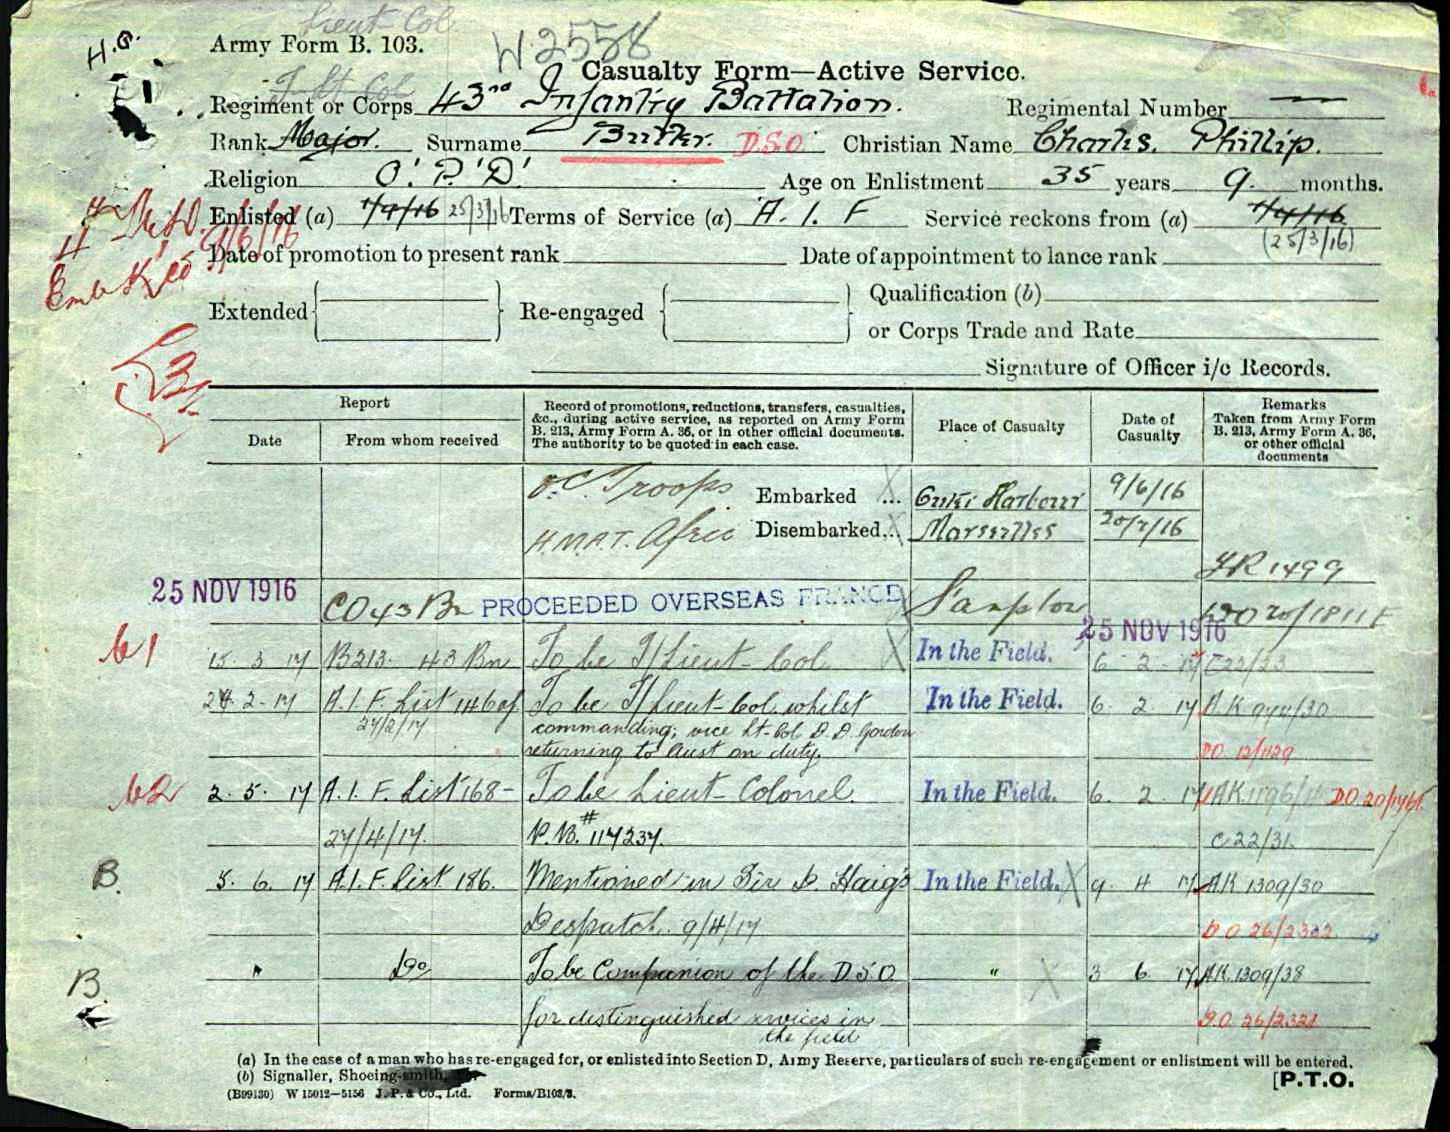 Lieut Col.
H.Q.
Army Form B. 103.
W.2558
T/Lt Col
Casualty Form—Active Service.
Regiment or Corps 43rd Infantry Battalion. Regimental Number
Rank Major. Surname Butler. D.S.O. Christian Name Charles. Phillip.
Religion O' P.' D.' Age on Enlistment 35 years 9. months.
Enlisted (a) 1/4/16 25/3/16 Terms of Service (a) A. I. F Service reckons from (a) 1/4/16
(25/3/16)
9/6/16
Date of promotion to present rank Date of appointment to lance rank
Emb
Extended Re-engaged Qualification (b)
or Corps Trade and Rate
Signature of Officer i/c Records.
Report
Date From whom received
Record of promotions, reductions, transfers, casualties, &c., during active service, as reported on Army Form B. 213, Army Form A. 36, or in other official documents. The authority to be quoted in each case.
Place of Casualty
Date of Casualty
Remarks Taken from Army Form B. 213, Army Form A. 36, or other official documents
O.C. Troops Embarked ... Outer Harbour 9/6/16
H.M.A.T. Afric Disembarked... Marseilles 20/7/16
FR 1499
25 NOV 1916 CO 43 Bn PROCEEDED OVERSEAS FRANCE 25 NOV 1916
b1
15 3 17 B213. 43 Bn To be T/Lieut-Col. In the Field. 6 2 17 C22/23
24. 2. 17 A.I.F. List 146 of To be T/Lieut-Col. whilst In the Field. 6 2 17 AK 940/30
27/2/17 commanding; vice Lt-Col D.D. Gordon
returning to Aust on duty. DO 12/1129
b2
2. 5. 17 A.I.F. List 168- To be Lieut-Colonel. In the Field. 6. 2 17 DO 20/1761
27/4/17. P.B.# 117237. C22/31
B.
5. 6. 17 A.I.F. List 186. Mentioned in Sir D. Haig's In the Field. 9 4 17 AK 1309/30
Despatch. 9/4/17 DO 26/2322
B.
" Do To be Companion of the D.S.O. " 3 6 17 AK 1309/38
for distinguished services in DO 26/2321
the field
(a) In the case of a man who has re-engaged for, or enlisted into Section D, Army Reserve, particulars of such re-engagement or enlistment will be entered.
(b) Signaller, Shoeing-smith,
[P.T.O.
(B99130) W 15012—5156 J. P. & Co., Ltd. Forms/B103/3.